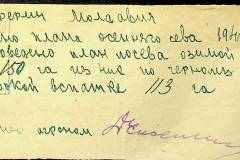 ферми Молдавия
но плана осеннего сева 194
поведено план посева озимой
150 га из них по черному
вспашке 113 га
агроном